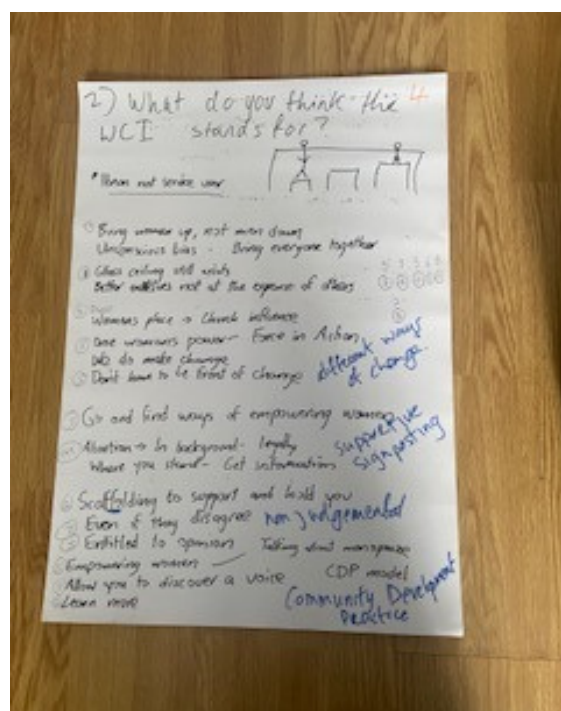 2) What do you think the 4
WCI stands for?
Person not service user
Bring women up, not men down
Unconscious bias - Bring everyone together
Glass ceiling still exists
Better not at the expense of others
Womens place → Church influence
One womans power - Force in Action
do make change
different ways
of change.
Don't have to be front of change
Go and find ways of empowering women
supportive
signposting
Abortion → In background - legally
Where you stand - Get information
Scaffolding to support and hold you
Even if they disagree non judgemental
Entitled to opinion Talking about menopause
Empowering women
Allow you to discover a voice CDP model
Learn more Community Development
Practice